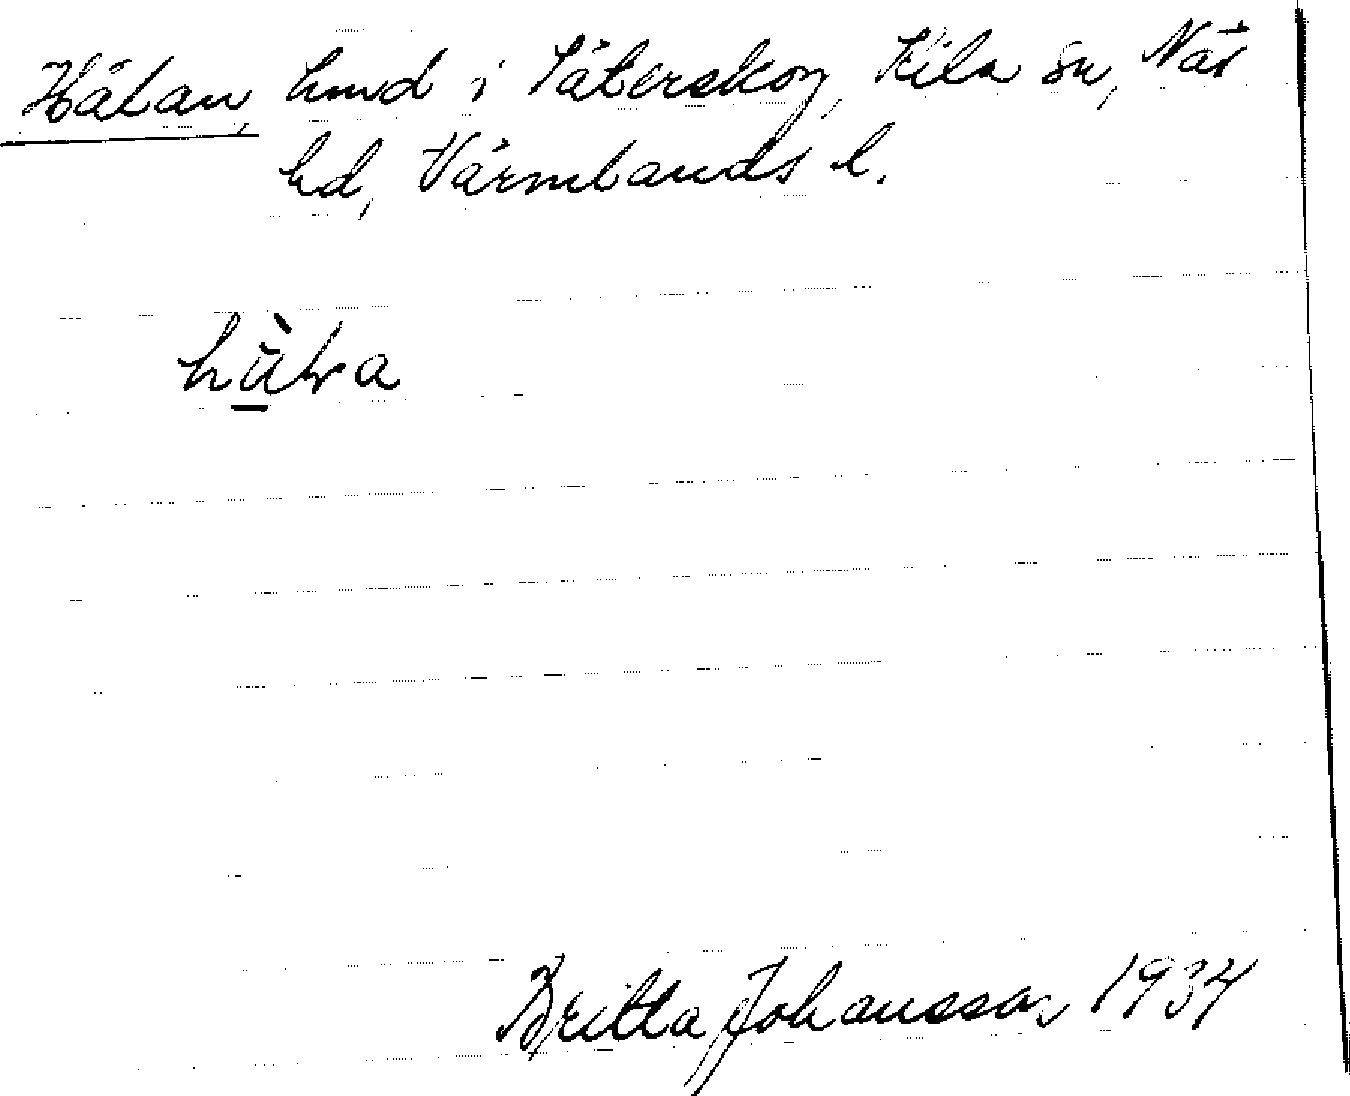 Hålan, hmd i Säterskog, Kila sn, Näs
hd, Värmlands l.
Britta Johansson 1934